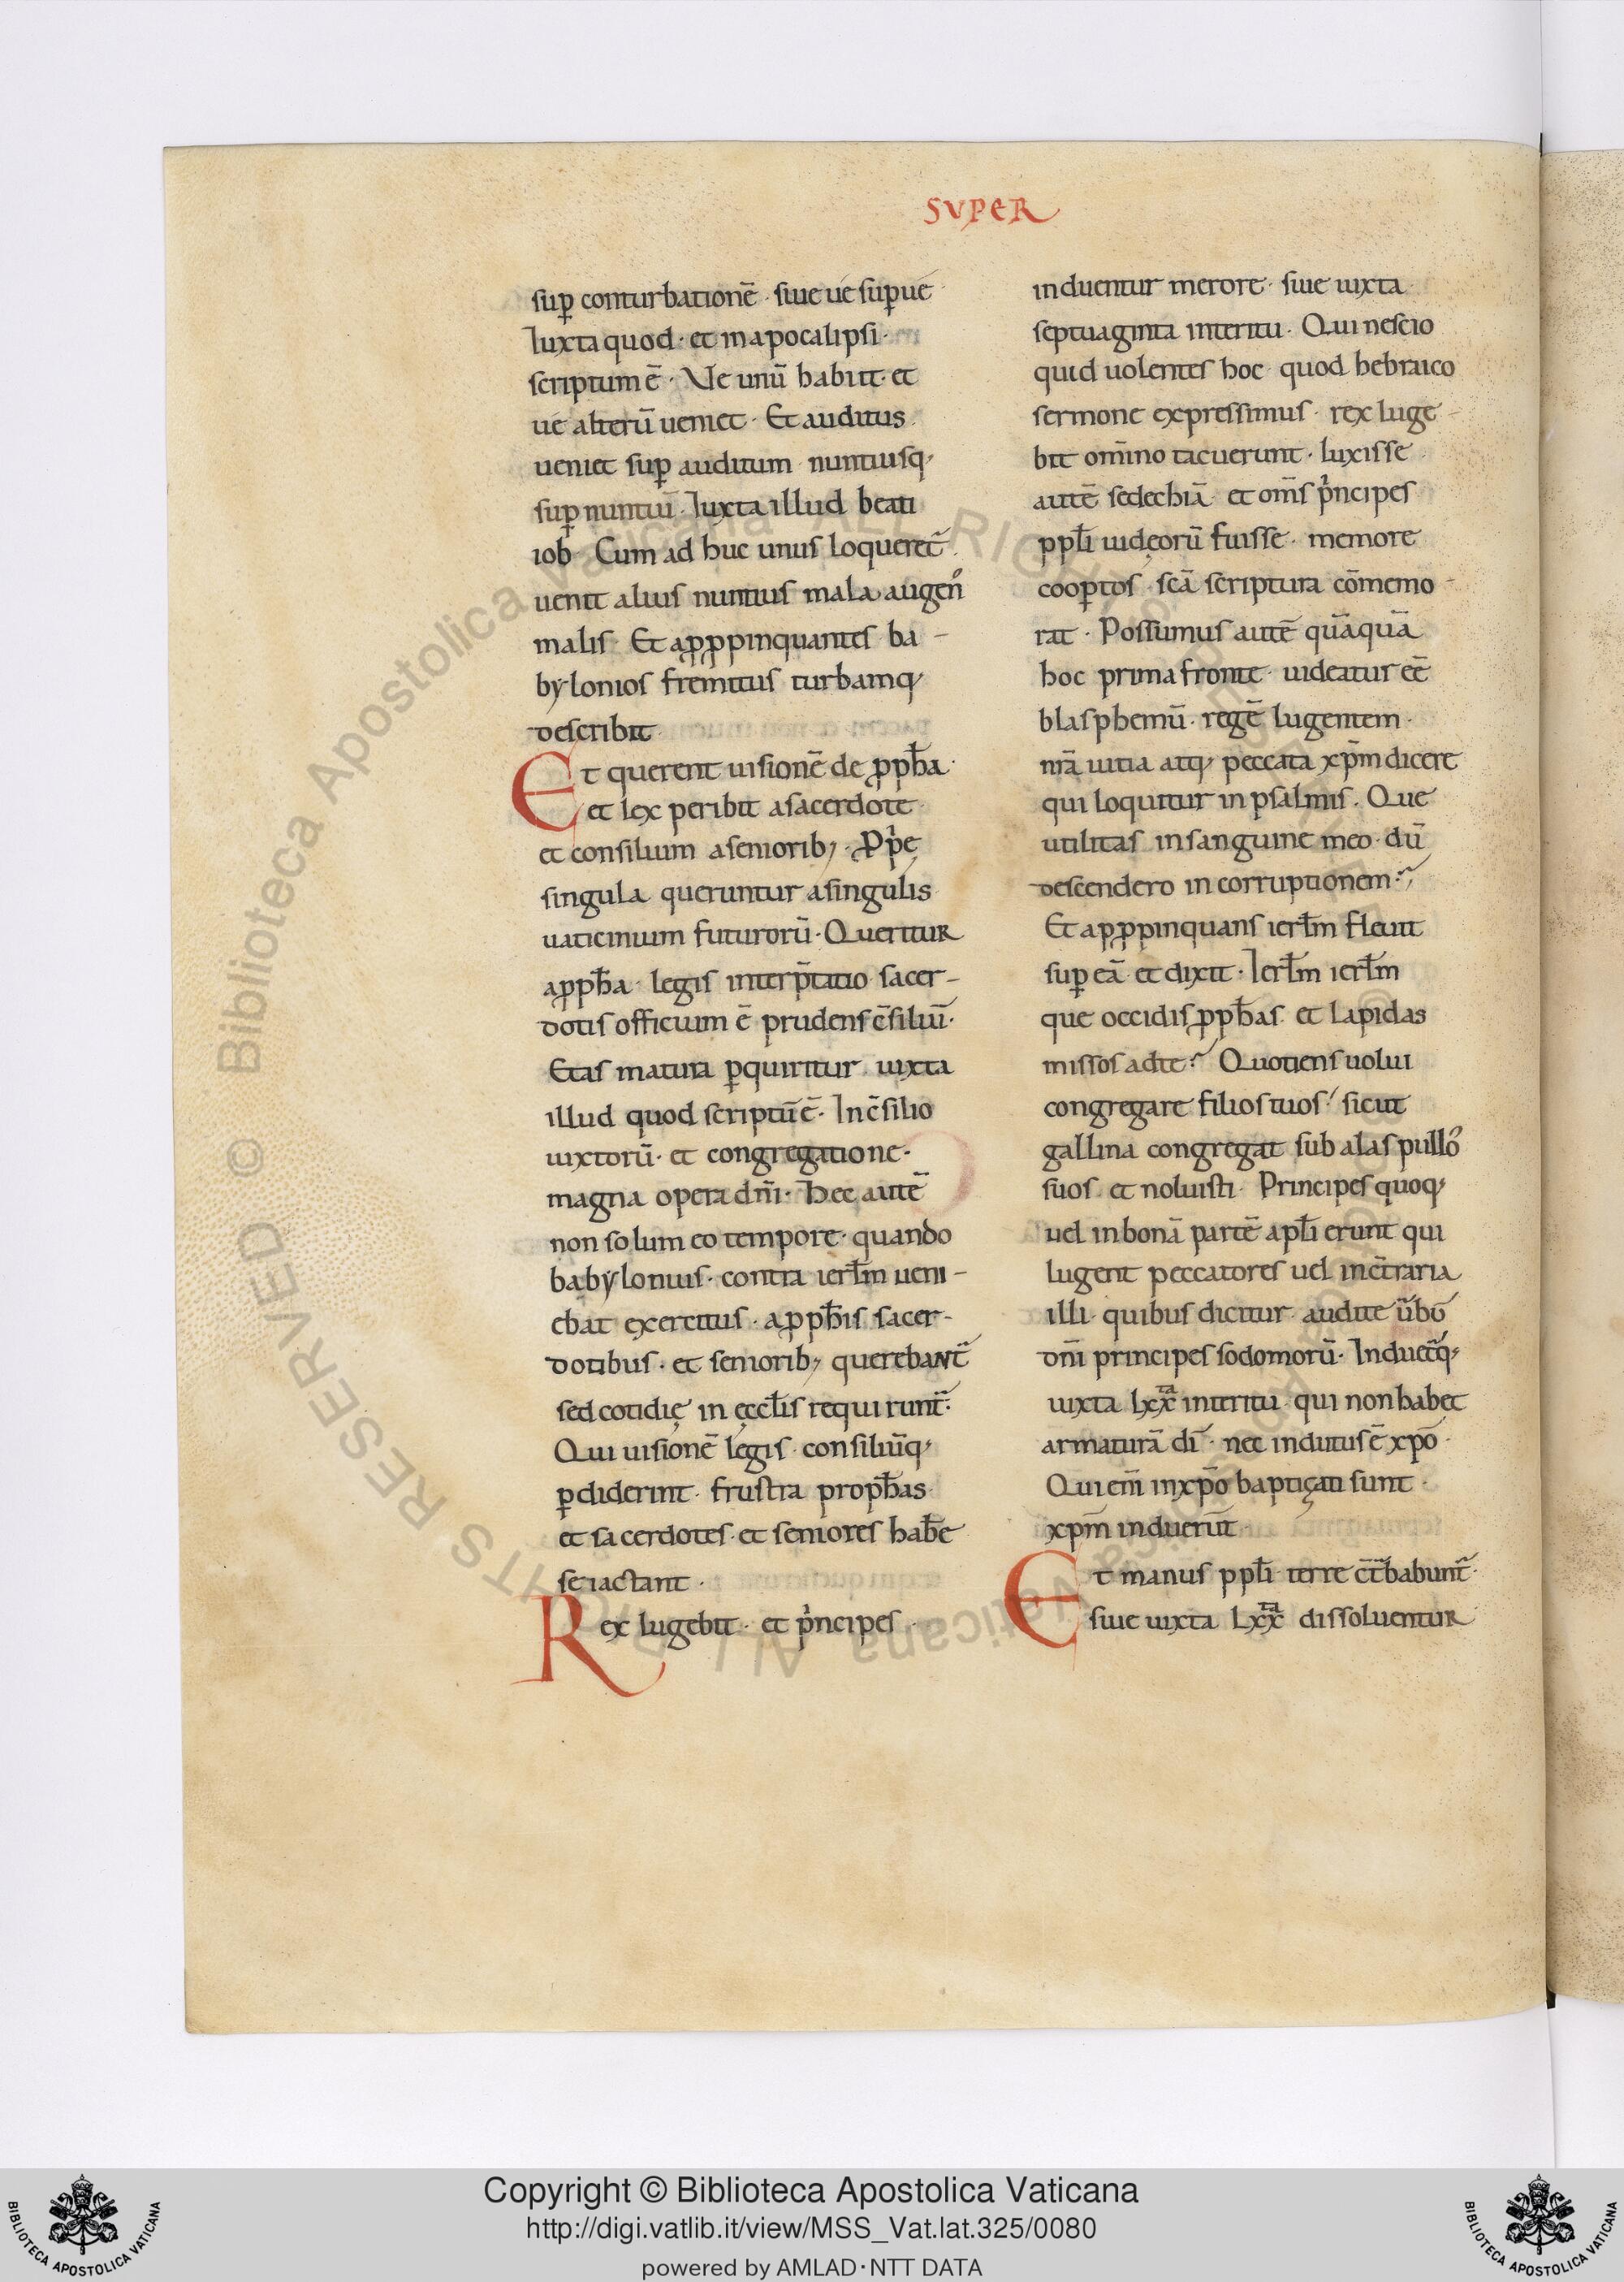 SUPER
sup̱ conturbationē · siue ué sup̱ ué
Iuxta quod · et in apocalipsi ·
scriptum ē · Ve unū habiit · et
ué alterū ueniet · Et auditus
ueniet sup̱ auditum nuntiusq;
sup̱ nuntiū · Iuxta illud beati
iob · Cum ad huc unus loqueret᷑
uenit alius nuntius mala augenˢ
malis · Et apꝓpinquantes ba-
bylonios fremitus turbamq;
describit
Et querent uisionē de ꝓph̄a ·
et lex peribit a sacerdote
et consilium a seniorib; · Ppͥe
singula queruntur a singulis
uaticinium futurorū · Queritur
a ꝓph̄a · legis interp̄tatio sacer-
dotis officium ē prudens c̄siliū ·
Etas matura ꝑquiritur iuxta
illud quod scriptū ē · In c̄silio
iuxtorū · et congregatione ·
magna opera dn̄i · Hec autē
non solum eo tempore · quando
babylonius · contra ierłm ueni-
ebat exercitus · a ꝓph̄is sacer-
dotibus · et seniorib; querebant᷑
sed cotidię in ęccłis requirunt᷑ :
Qui uisionē legis · consiliūq;
ꝑdiderint · frustra proph̄as
et sacerdotes · et seniores hab̄e
se iactant ·
Rex lugebit · et pͥncipes ·
induentur merore · siue iuxta
septuaginta interitu · Qui nescio
quid uolentes hoc quod hebraico
sermone expressimus · rex luge-
bit om̄ino tacuerunt · luxisse
autē sedechiā et om̄s pͥncipes
ppłi iudęorū fuisse · memore
coop̱tos · sc̄a scriptura cōmemo-
rat · Possumus autē quāquā
hoc prima fronte uideatur eē
blasphemū · regē lugentem ·
nr̄a uitia atq; peccata xp̄m dicere
qui loquitur in psalmis · Que
utilitas in sanguine meo · dū
descendero in corruptionem?
Et apꝓpinquans ierłm fleuit
sup̱ eā et dixit · Ierłm ierłm
que occidis ꝓph̄as et lapidas
missos ad te? Quotiens uolui
congregare filios tuos sicut
gallina congregat sub alas pulloˢ
suos · et noluisti · Principes quoq;
uel in bonā partē apłi erunt qui
lugent peccatores uel in c̄traria
illi quibus dicitur audite ūbū
dn̄i principes sodomorū · Induet᷑q;
iuxta lxxᵗᵃ interitu qui non habet
armaturā dī · nec indutus ē xp̄o ·
Qui em̄ in xp̄o baptiçati sunt ·
xpm̄ induerūt ·
Et manus ppłi terre c̄t̄babunt᷑ ·
siue iuxta Lxxᵗᵃ dissoluentur
Copyright © Biblioteca Apostolica Vaticana
http://digi.vatlib.it/view/MSS_Vat.lat.325/0080
powered by AMLAD·NTT DATA